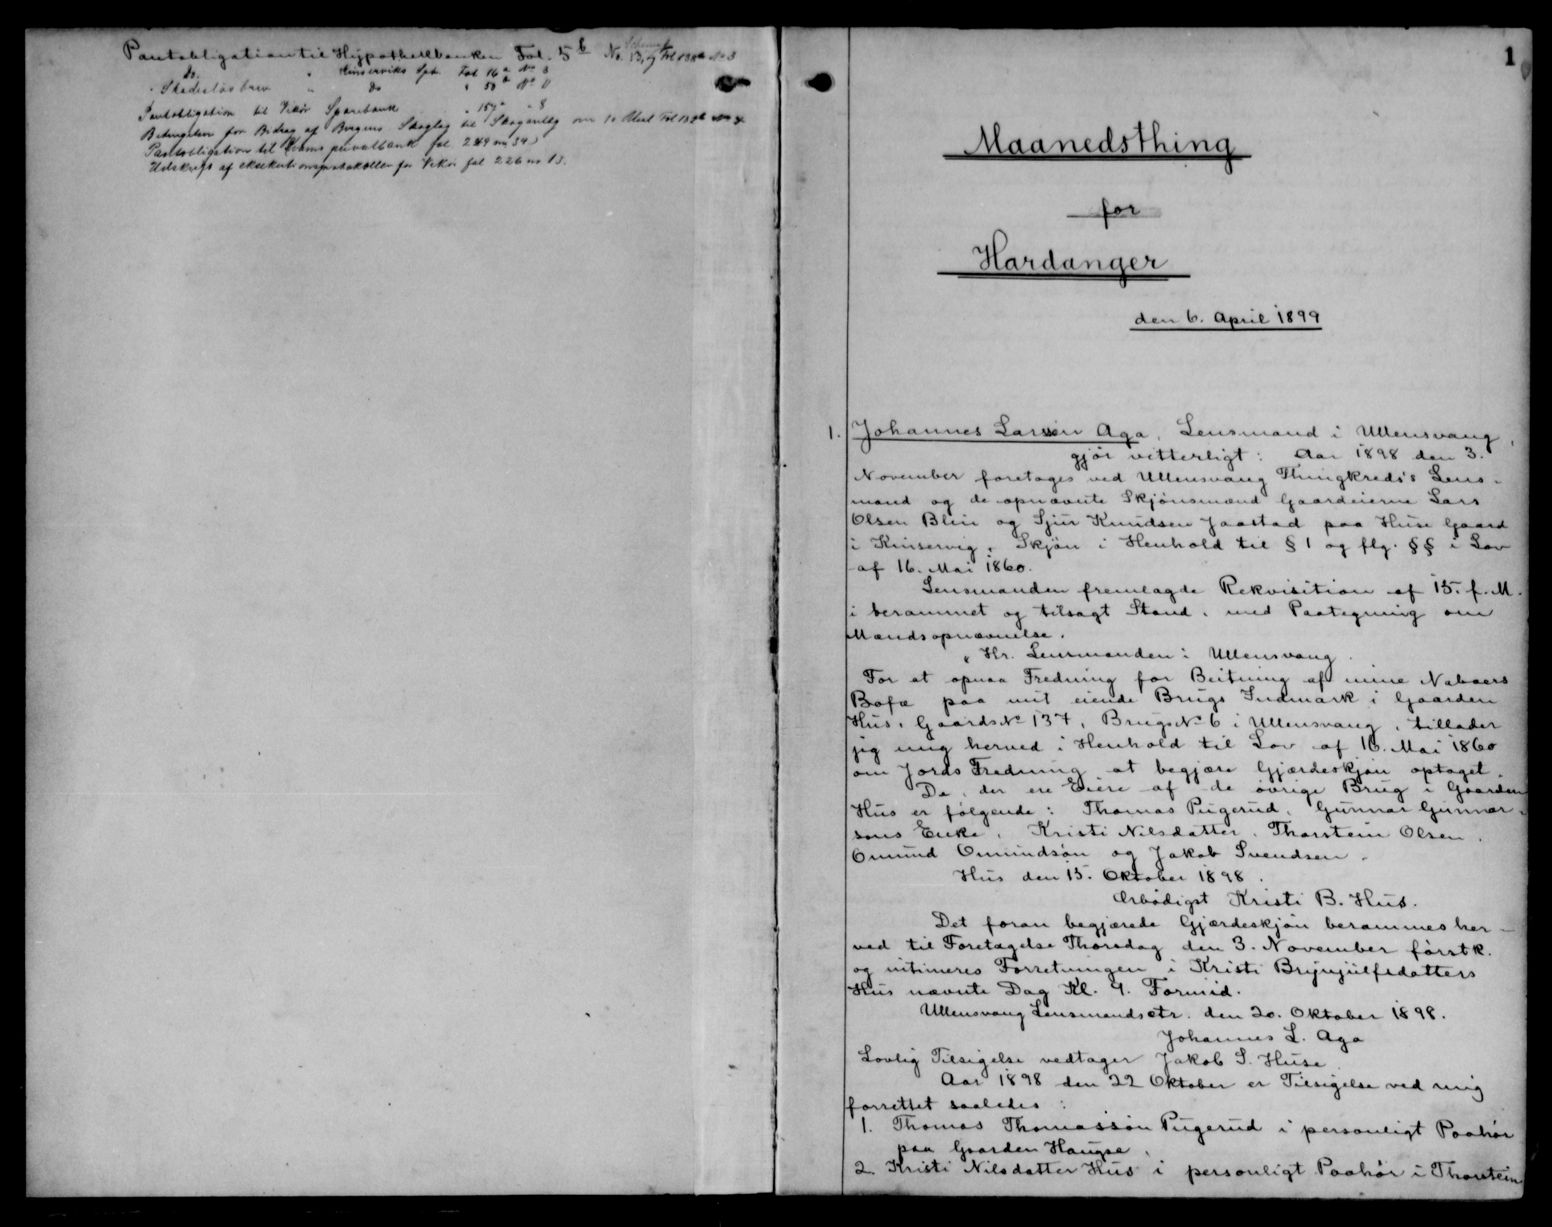 Pantobligation til Hypothekbanken Fol. 5 b No. 13,
do. " Kinserviks Spb. Fol 16 a No 3
Skadesløsbrev " do " 53 a No 11
Pantobligation til Vikør Sparebank " 157 a " 8
Betingelser for Bidrag af Bergens Skogselskab til Skoganlæg
Pantobligation til Kvams privatbank fol. 289 no 34)
Udskrift af eksekutionsprotokollen for Vikør fol 226 no 13.
1
Maanedsthing
for
Hardanger
den 6. April 1899
1. Johannes Larsen Aga, Lensmand i Ullensvang,
gjør vitterligt: Aar 1898 den 3.
November foretoges ved Ullensvang Thingkreds's Lens-
mand og de opnævnte Skjønsmænd Gaardeierne Lars
Olsen Blie og Sjur Knudsen Jaastad paa Huse Gaard
i Kinservig, Skjøn i Henhold til § 1 og flg. §§ i Lov
af 16. Mai 1860.
Lensmanden fremlagde Rekvisition af 15. f. M.
i berammet og tilsagt Stand, med Paategning om
Mandsopnævnelse.
" Hr. Lensmanden i Ullensvang.
For at opnaa Fredning for Beitning af mine Naboers
Bofæ paa mit eiende Brugs Indmark i Gaarden
Hus, Gaards No 137, Brugs No 6 i Ullensvang, tillader
jeg mig herved i Henhold til Lov af 16. Mai 1860
om Jords Fredning at begjære Gjærdeskjøn optaget.
De, der ere Eiere af de øvrige Brug i Gaarden
Hus er følgende: Thomas Pugerud, Gunnar Gunnar-
sons Enke, Kristi Nilsdatter, Thorstein Olsen,
Omund Omundsøn og Jakob Svendsen.
Hus den 15. Oktober 1898.
Ærbødigst Kristi B. Hus.
Det foran begjærede Gjærdeskjøn berammes her-
ved til Foretagelse Thorsdag den 3. November førstk.
og intimeres Forretningen i Kristi Brynjulfsdatters
Hus nævnte Dag Kl. 9. Formid.
Ullensvang Lensmandsctr. den 20. Oktober 1898.
Johannes L. Aga
Lovlig Tilsigelse vedtager Jakob S. Huse.
Aar 1898 den 22 Oktober er Tilsigelse ved mig
forrettet saaledes:
1. Thomas Thomassøn Pugerud i personligt Paahør
paa Gaarden Haugse.
2. Kristi Nilsdatter Hus i personligt Paahør i Thorstein